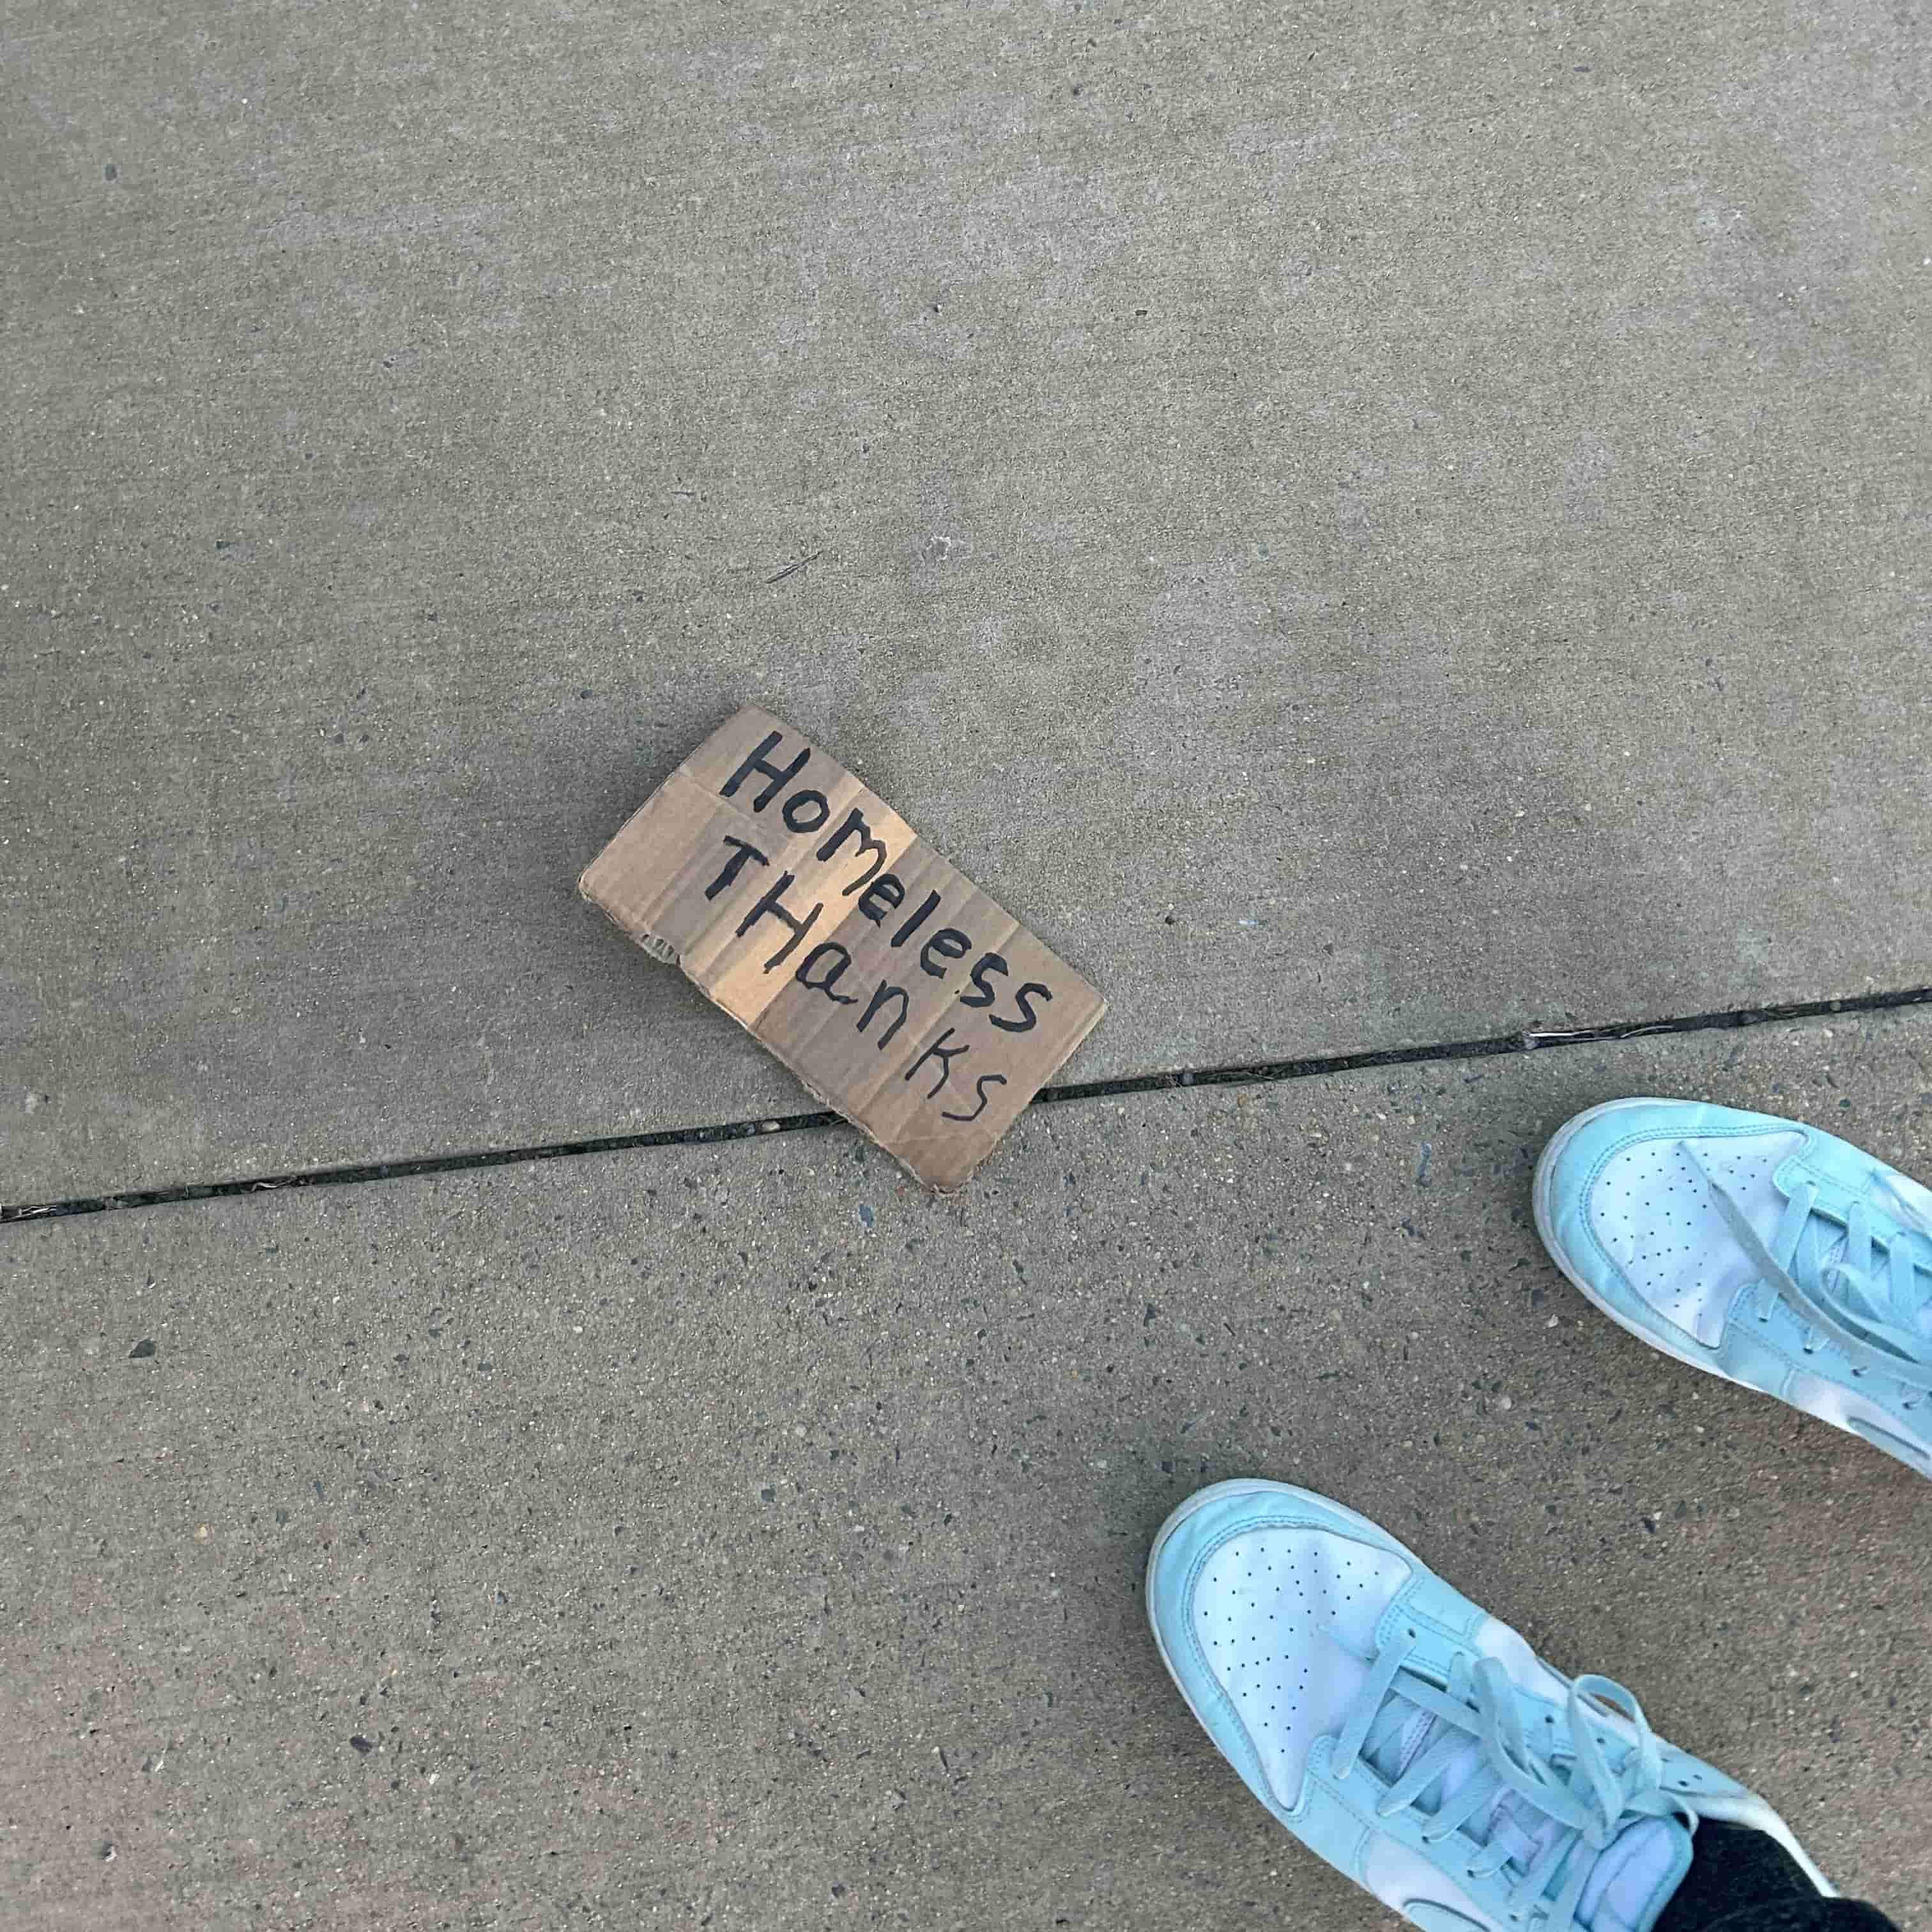 Homeless
THanKs